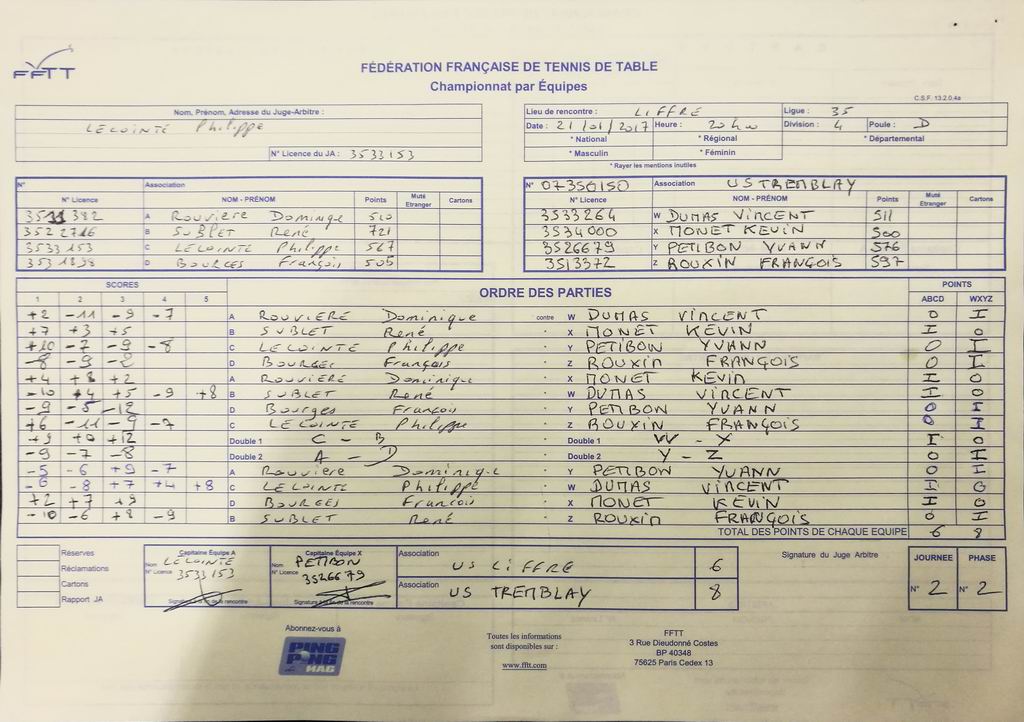 FFTT
FÉDÉRATION FRANÇAISE DE TENNIS DE TABLE
Championnat par Équipes
C.S.F. 13.2.0.4a
Nom, Prénom, Adresse du Juge-Arbitre :
LECOINTE Philippe
N° Licence du JA : 3533153
Lieu de rencontre : LIFFRE Ligue : 35
Date : 21/01/2017 Heure : 20h00 Division : 4 Poule : D
* National * Régional * Départemental
* Masculin * Féminin
* Rayer les mentions inutiles
N° Association
N° Licence NOM - PRÉNOM Points Muté Etranger Cartons
382 A ROUVIERE Dominique 510
3522716 B SUBLET René 721
3533153 C LECOINTE Philippe 567
D BOURGES François 505
N° 07350150 Association US TREMBLAY
N° Licence NOM - PRÉNOM Points Muté Etranger Cartons
3533264 W DUMAS VINCENT 511
3534000 X MONET KEVIN 500
3526679 Y PETIBON YVANN 576
3513372 Z ROUXIN FRANÇOIS 597
SCORES ORDRE DES PARTIES POINTS
1 2 3 4 5 ABCD WXYZ
+2 -11 -9 -7 A ROUVIERE Dominique contre W DUMAS VINCENT 0 I
+7 +3 +5 B SUBLET René - X MONET KEVIN I 0
+10 -7 -9 -8 C LECOINTE Philippe - Y PETIBON YVANN 0 I
-8 -9 -2 D BOURGES François - Z ROUXIN FRANÇOIS 0 I
+4 +8 +2 A ROUVIERE Dominique - X MONET KEVIN I 0
-10 +4 +5 -9 +8 B SUBLET René - W DUMAS VINCENT I 0
-9 -5 -12 D Bourges François - Y PETIBON YVANN 0 I
+6 -11 -9 -7 C LECOINTE Philippe - Z ROUXIN FRANÇOIS 0 I
+9 +12 Double 1 C - B - Double 1 W - X I 0
-9 -7 -8 Double 2 A - D - Double 2 Y - Z 0 I
-5 -6 +9 -7 A Rouviere Dominique - Y PETIBON YVANN 0 I
-6 -8 +7 +4 +8 C LECOINTE Philippe - W DUMAS VINCENT I 0
+2 +7 +9 D BOURGES François - X MONET KEVIN I 0
-10 -6 +8 -9 B SUBLET René - Z ROUXIN FRANÇOIS 0 I
TOTAL DES POINTS DE CHAQUE EQUIPE 6 8
Réserves
Réclamations
Cartons
Rapport JA
Capitaine Équipe A
Nom LECOINTE
N° Licence 3533153
Signature à la fin de la rencontre
Capitaine Équipe X
Nom PETIBON
N° Licence 3526679
Signature à la fin de la rencontre
Association US LIFFRE 6
Association US TREMBLAY 8
Signature du Juge Arbitre
JOURNEE PHASE
N° 2 N° 2
Abonnez-vous à
PING PONG MAG
Toutes les informations
sont disponibles sur :
www.fftt.com
FFTT
3 Rue Dieudonné Costes
BP 40348
75625 Paris Cedex 13